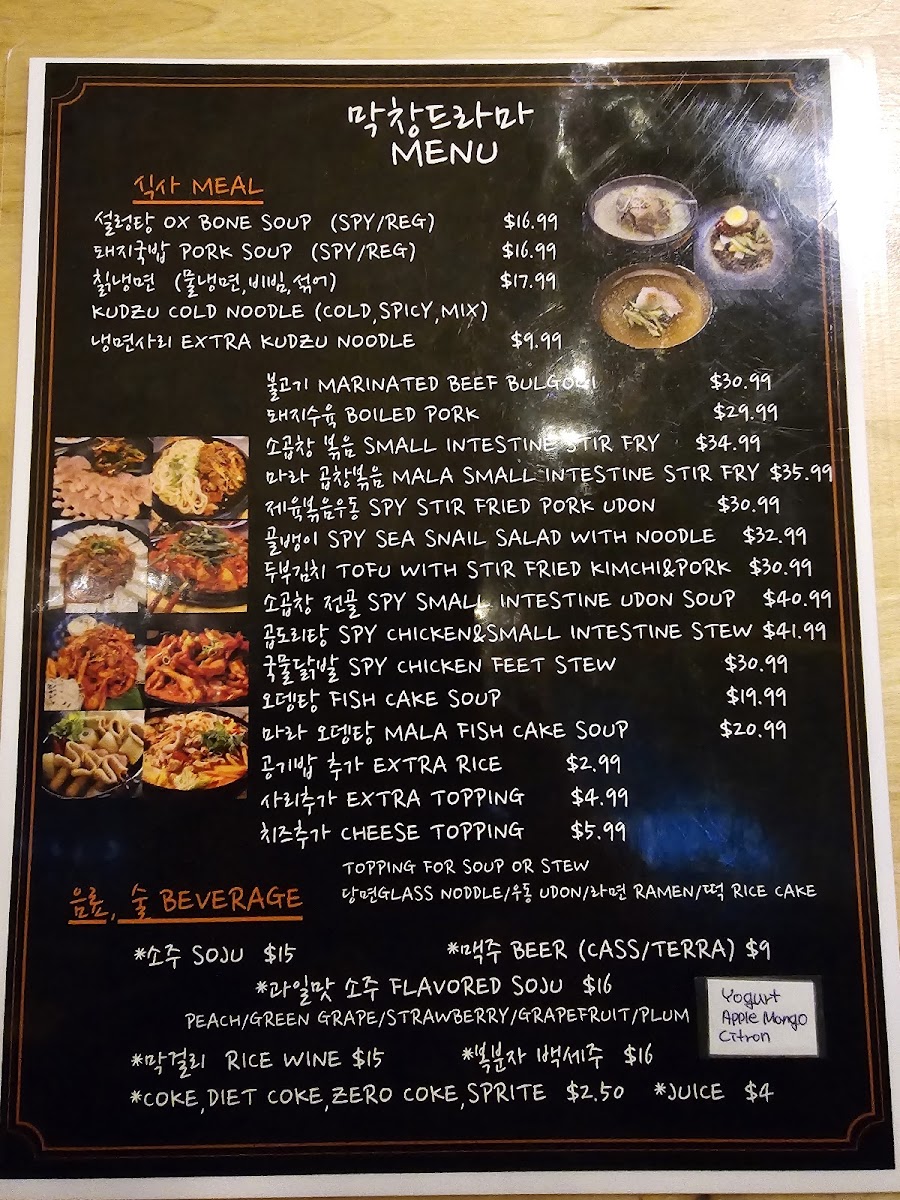 막창드라마
MENU
식사 MEAL
설렁탕 OX BONE SOUP (SPY/REG) $16.99
돼지국밥 PORK SOUP (SPY/REG) $16.99
칡냉면 (물냉면,비빔,섞어) $17.99
KUDZU COLD NOODLE (COLD,SPICY,MIX)
냉면사리 EXTRA KUDZU NOODLE $9.99
불고기 MARINATED BEEF BULGOGI $30.99
돼지수육 BOILED PORK $29.99
소곱창 볶음 SMALL INTESTINE STIR FRY $34.99
마라 곱창볶음 MALA SMALL INTESTINE STIR FRY $35.99
제육볶음우동 SPY STIR FRIED PORK UDON $30.99
골뱅이 SPY SEA SNAIL SALAD WITH NOODLE $32.99
두부김치 TOFU WITH STIR FRIED KIMCHI&PORK $30.99
소곱창 전골 SPY SMALL INTESTINE UDON SOUP $40.99
곱도리탕 SPY CHICKEN&SMALL INTESTINE STEW $41.99
국물닭발 SPY CHICKEN FEET STEW $30.99
오뎅탕 FISH CAKE SOUP $19.99
마라 오뎅탕 MALA FISH CAKE SOUP $20.99
공기밥 추가 EXTRA RICE $2.99
사리추가 EXTRA TOPPING $4.99
치즈추가 CHEESE TOPPING $5.99
TOPPING FOR SOUP OR STEW
당면GLASS NODDLE/우동 UDON/라면 RAMEN/떡 RICE CAKE
음료, 술 BEVERAGE
*소주 SOJU $15 *맥주 BEER (CASS/TERRA) $9
*과일맛 소주 FLAVORED SOJU $16
PEACH/GREEN GRAPE/STRAWBERRY/GRAPEFRUIT/PLUM
Yogurt
Apple Mango
Citron
*막걸리 RICE WINE $15 *복분자 백세주 $16
*COKE,DIET COKE,ZERO COKE,SPRITE $2.50 *JUICE $4